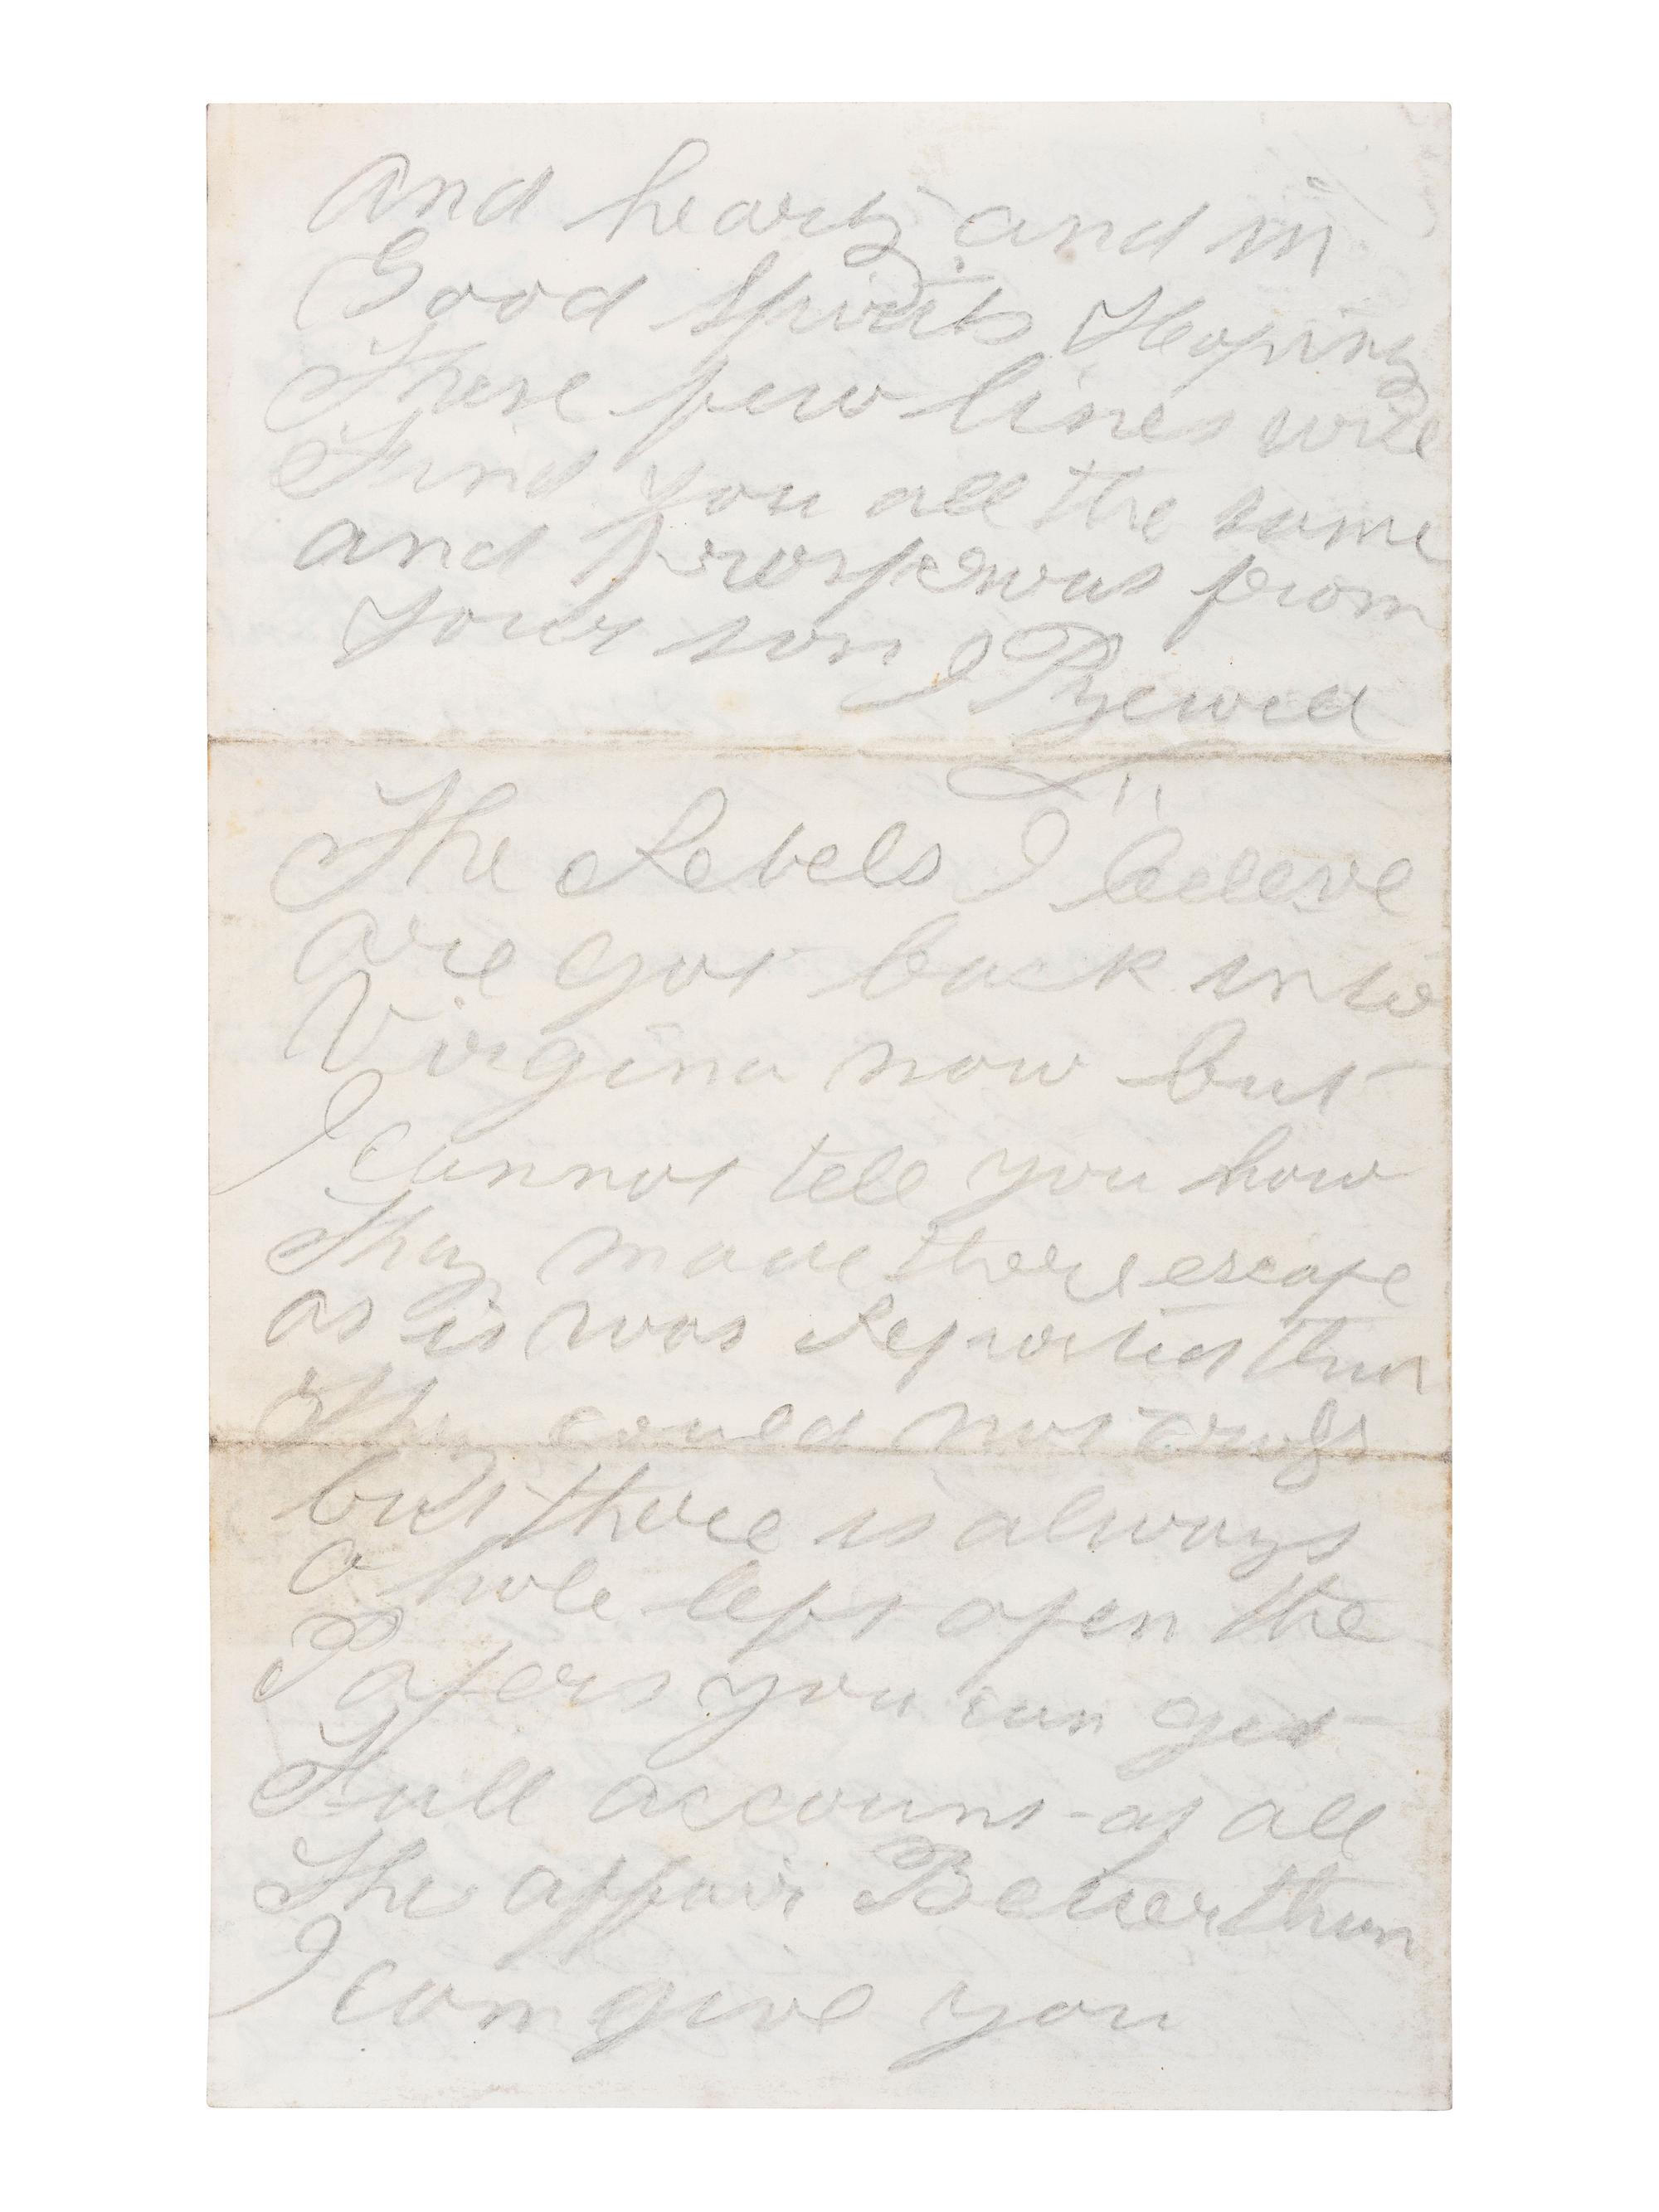 and hearty and in
Good Spirits Hoping
These few lines will
Find you all the same
and Prosperous from
your son J Pyewell
The Rebels I beleve
are got back into
Virgina now but
I cannot tell you how
They made there escape
as it was Reported that
They could not cross
but there is always
a hole left open the
Papers you can get
Full account of all
The affair Better than
I can give you